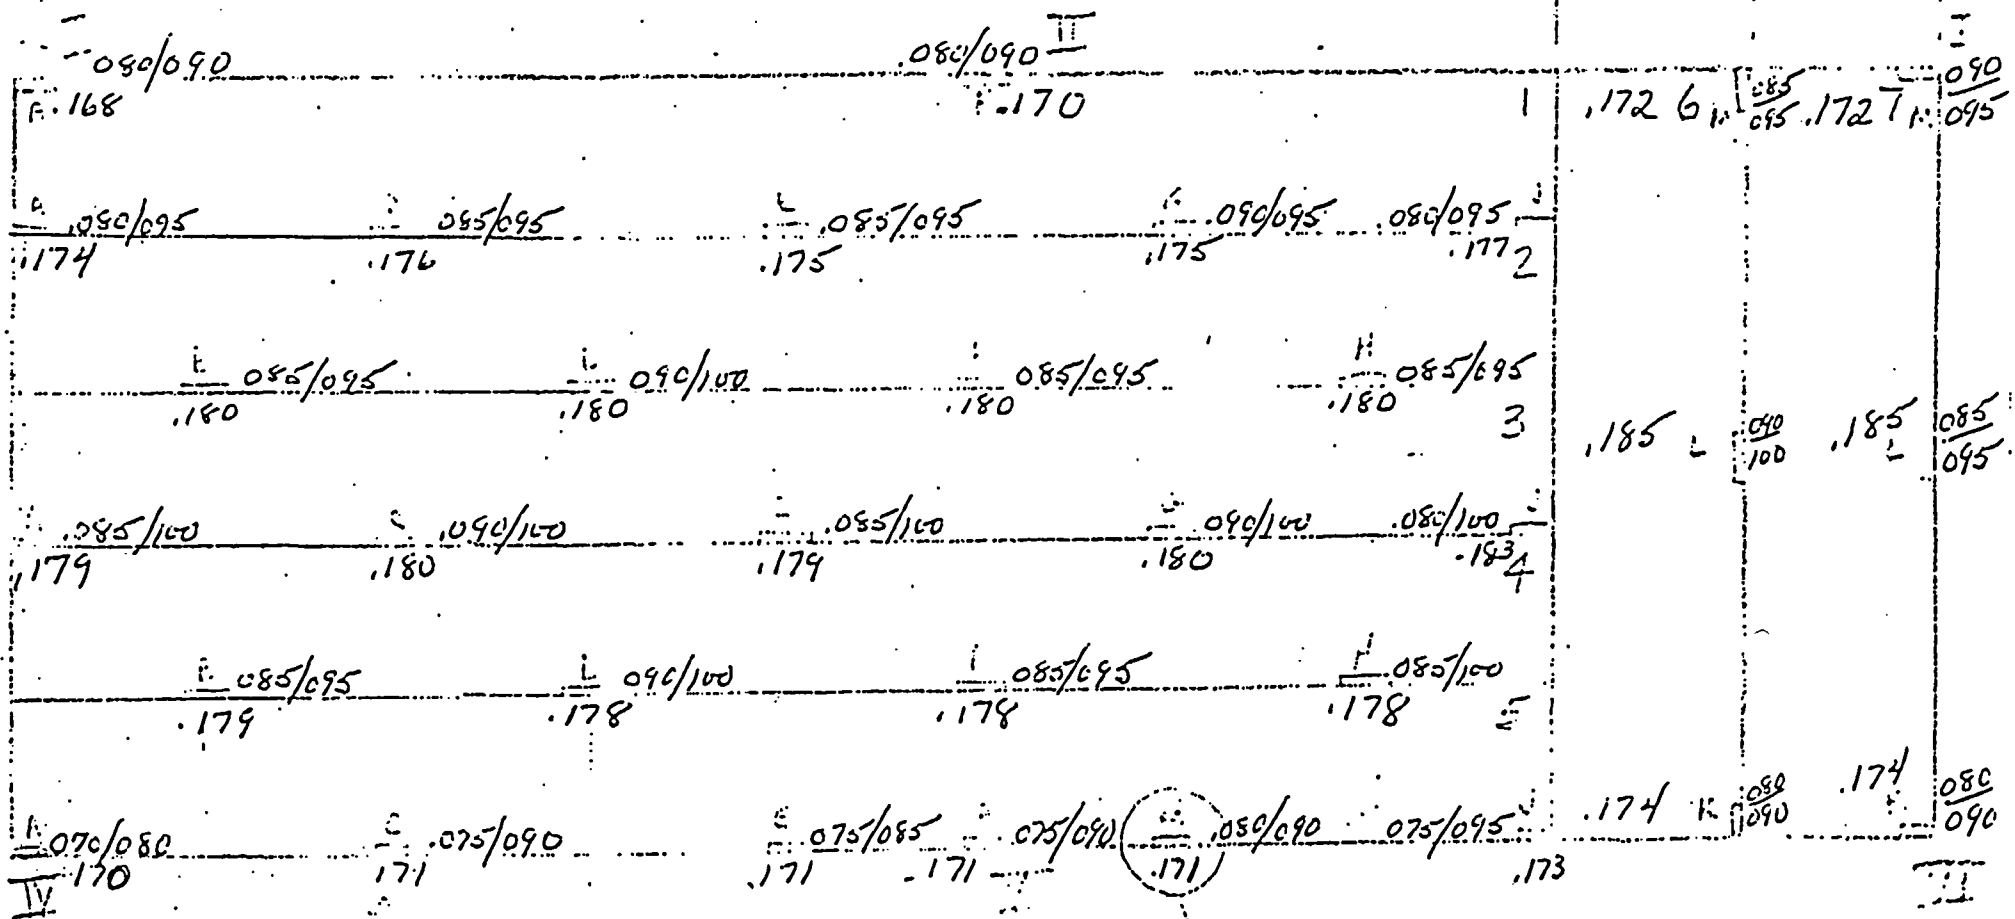 II I
080/090 .080/090 090
.168 .170 1 .172 6 085/095 .172 7 095
.080/095 085/095 .085/095 .090/095 .080/095
.174 .176 .175 .175 .177 2
085/095 090/100 085/095 H 085/095
.180 .180 .180 .180 3 .185 L 090/100 .185 L 085/095
.085/100 .090/100 .085/100 090/100 .080/100
.179 .180 .179 .180 .183 4
085/095 L 090/100 085/095 H 085/100
.179 .178 .178 .178 5
070/080 C .075/090 075/085 075/090 .080/090 075/095 .174 K 080/090 .174 080/090
.170 .171 .171 .171 .171 .173
IV